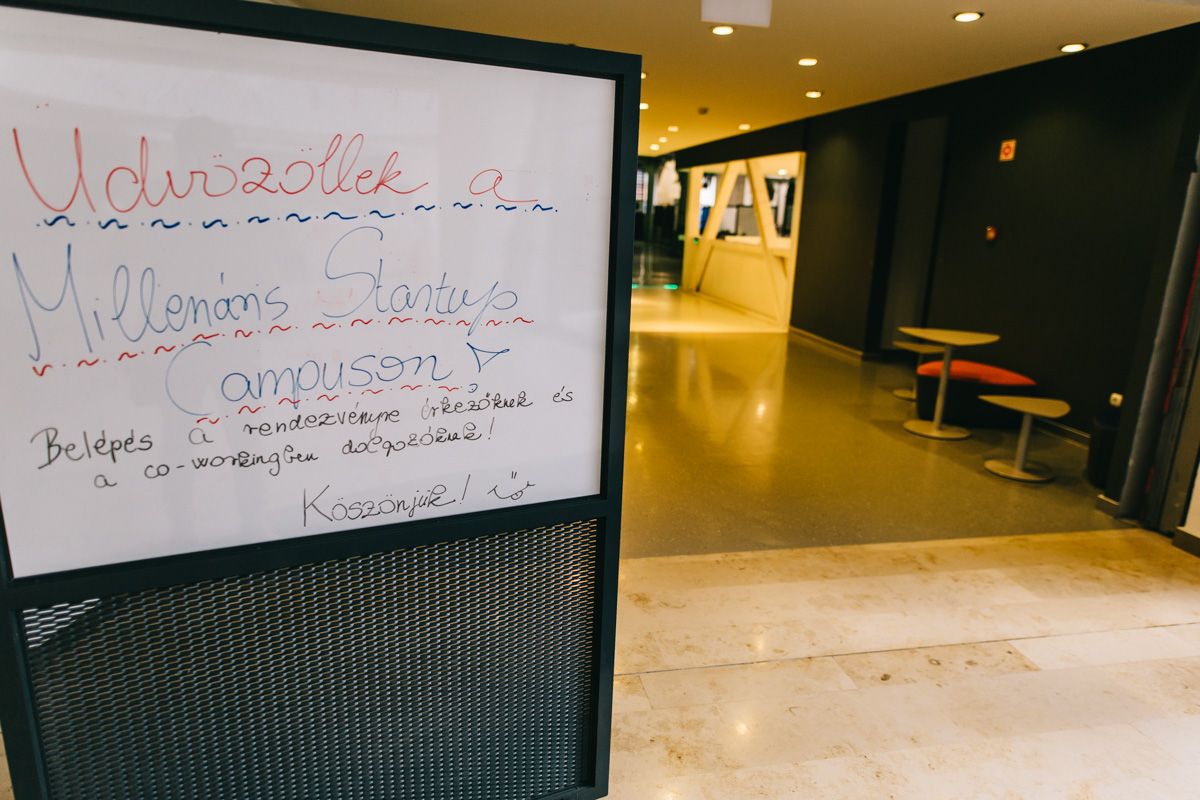 Üdvözöllek a
Millenáris Startup
Campuson
Belépés a rendezvényre érkezőknek és
a co-workingben dolgozóknak!
Köszönjük!